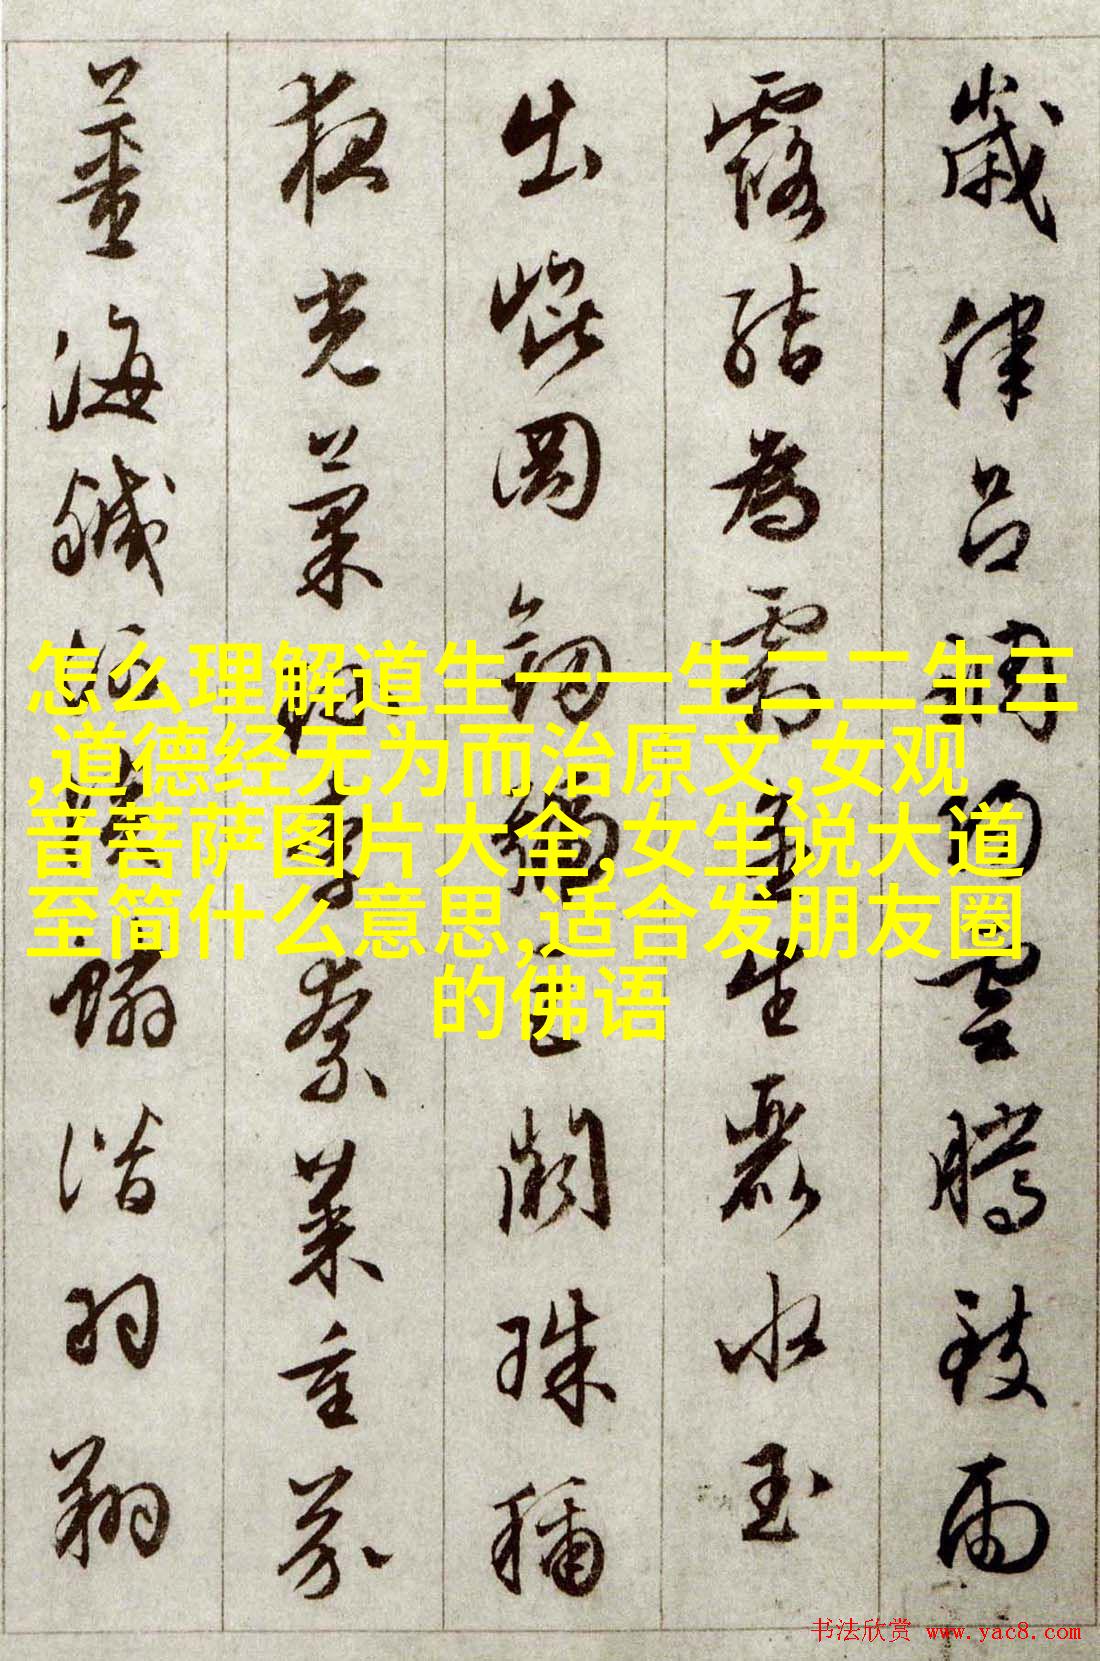 歲律呂調陽雲騰致雨
露結為霜金生麗水玉
出崐岡劍號巨闕珠稱
夜光菓珍李柰菜重芥
薑海鹹河淡鱗潛羽翔
怎么理解道生一一生二二生三
,道德经无为而治原文,女观
音菩萨图片大全,女生说大道
至简什么意思,适合发朋友圈
的佛语
书法欣赏 www.yac8.com